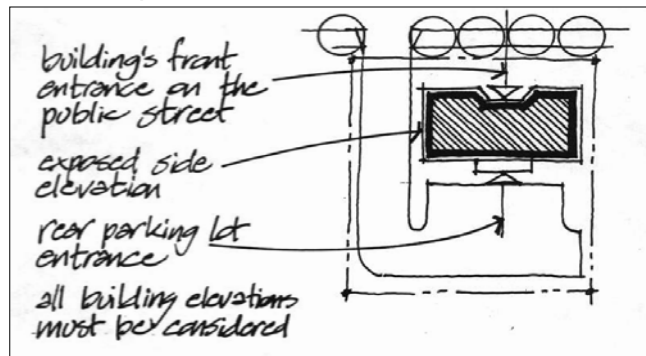 building's front
entrance on the
public street
exposed side
elevation
rear parking lot
entrance
all building elevations
must be considered